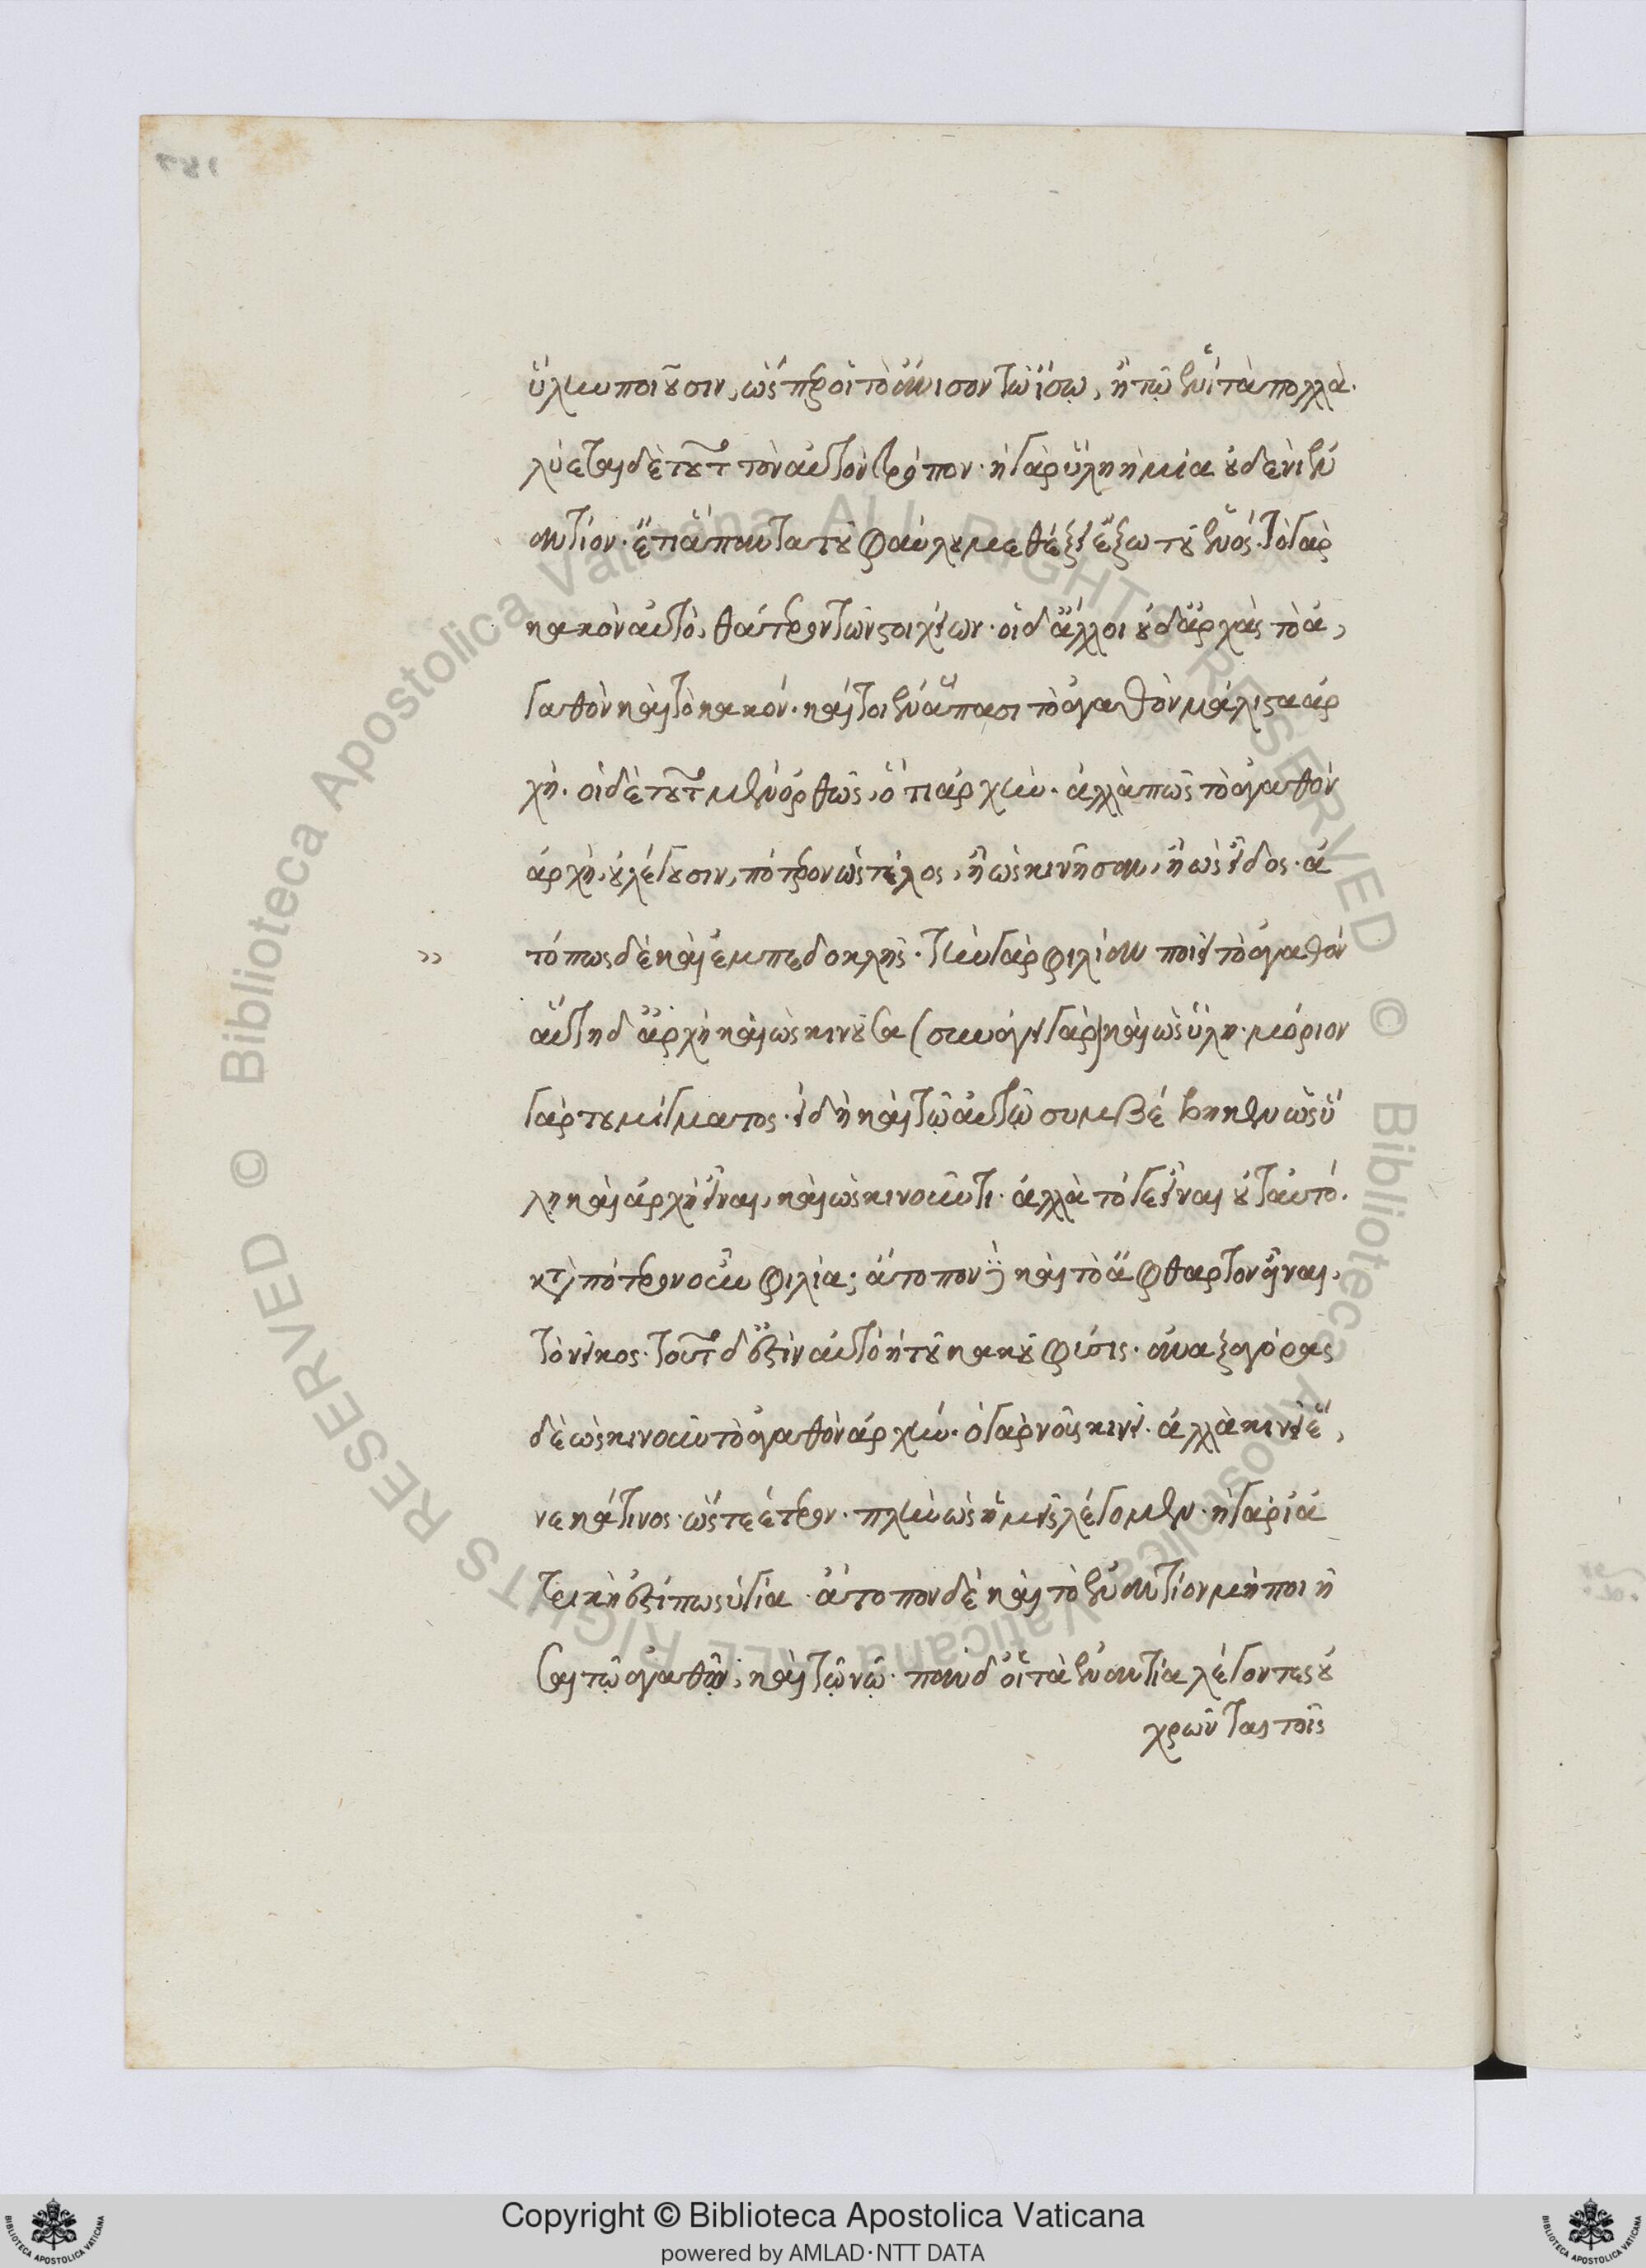 ὕλην ποιοῦσιν, ὥσπερ οἱ τὸ ἄνισον τῷ ἴσῳ, ἢ τῷ ἑνὶ τὰ πολλά.
λύεται δὲ τοῦτο τὸν αὐτὸν τρόπον· ἡ γὰρ ὕλη ἡ μία οὐδενὶ ἐν
αντίον· ἔτι ἅπαντα τοῦ φαύλου μεθέξει ἔξω τοῦ ἑνός· τὸ γὰρ
κακὸν αὐτὸ, θάτερον τῶν στοιχείων· οἱ δ' ἄλλοι οὐδ' ἀρχὰς τὸ ἀ,
γαθὸν καὶ τὸ κακόν· καίτοι ἐν ἅπασι τὸ ἀγαθὸν μάλιστα ἀρ
χή. οἱ δὲ τοῦτο μὲν ὀρθῶς, ὅτι ἀρχήν· ἀλλὰ πῶς τὸ ἀγαθὸν
ἀρχὴ, οὐ λέγουσιν, πότερον ὡς τέλος, ἢ ὡς κινῆσαν, ἢ ὡς εἶδος· ἀ
» τόπως δὲ καὶ ἐμπεδοκλῆς· τὴν γὰρ φιλίαν ποιεῖ τὸ ἀγαθόν
αὕτη δ' ἀρχὴ καὶ ὡς κινοῦσα (συνάγει γὰρ) καὶ ὡς ὕλη· μόριον
γὰρ του μίγματος· εἰ δὴ καὶ τῷ αὐτῷ συμβέβηκεν ὡς ὕ
λῃ καὶ ἀρχῇ εἶναι, καὶ ὡς κινοῦντι· ἀλλὰ τό γε εἶναι οὐ ταὐτό.
κατὰ πότερον οὖν φιλία; ἄτοπον δὲ καὶ τὸ ἄφθαρτον εἶναι,
τὸ νεῖκος· τοῦτο δ' ἐστὶν αὐτὸ ἡ τοῦ κακοῦ φύσις· ἀναξαγόρας
δὲ ὡς κινοῦν τὸ ἀγαθὸν ἀρχήν· ὁ γὰρ νοῦς κινεῖ· ἀλλὰ κινεῖ ἕ,
νεκά τινος· ὥστε ἕτερον· πλὴν ὡς ἡμεῖς λέγομεν· ἡ γὰρ ἰα
τρικὴ ἐστί πως ὑγίεια· ἄτοπον δὲ καὶ τὸ ἐναντίον μὴ ποιῆ
σαι τῷ ἀγαθῷ, καὶ τῷ νῷ· πάντες δ' οἱ τὰ ἐναντία λέγοντες οὐ
χρῶνται τοῖς
Copyright © Biblioteca Apostolica Vaticana
powered by AMLAD·NTT DATA